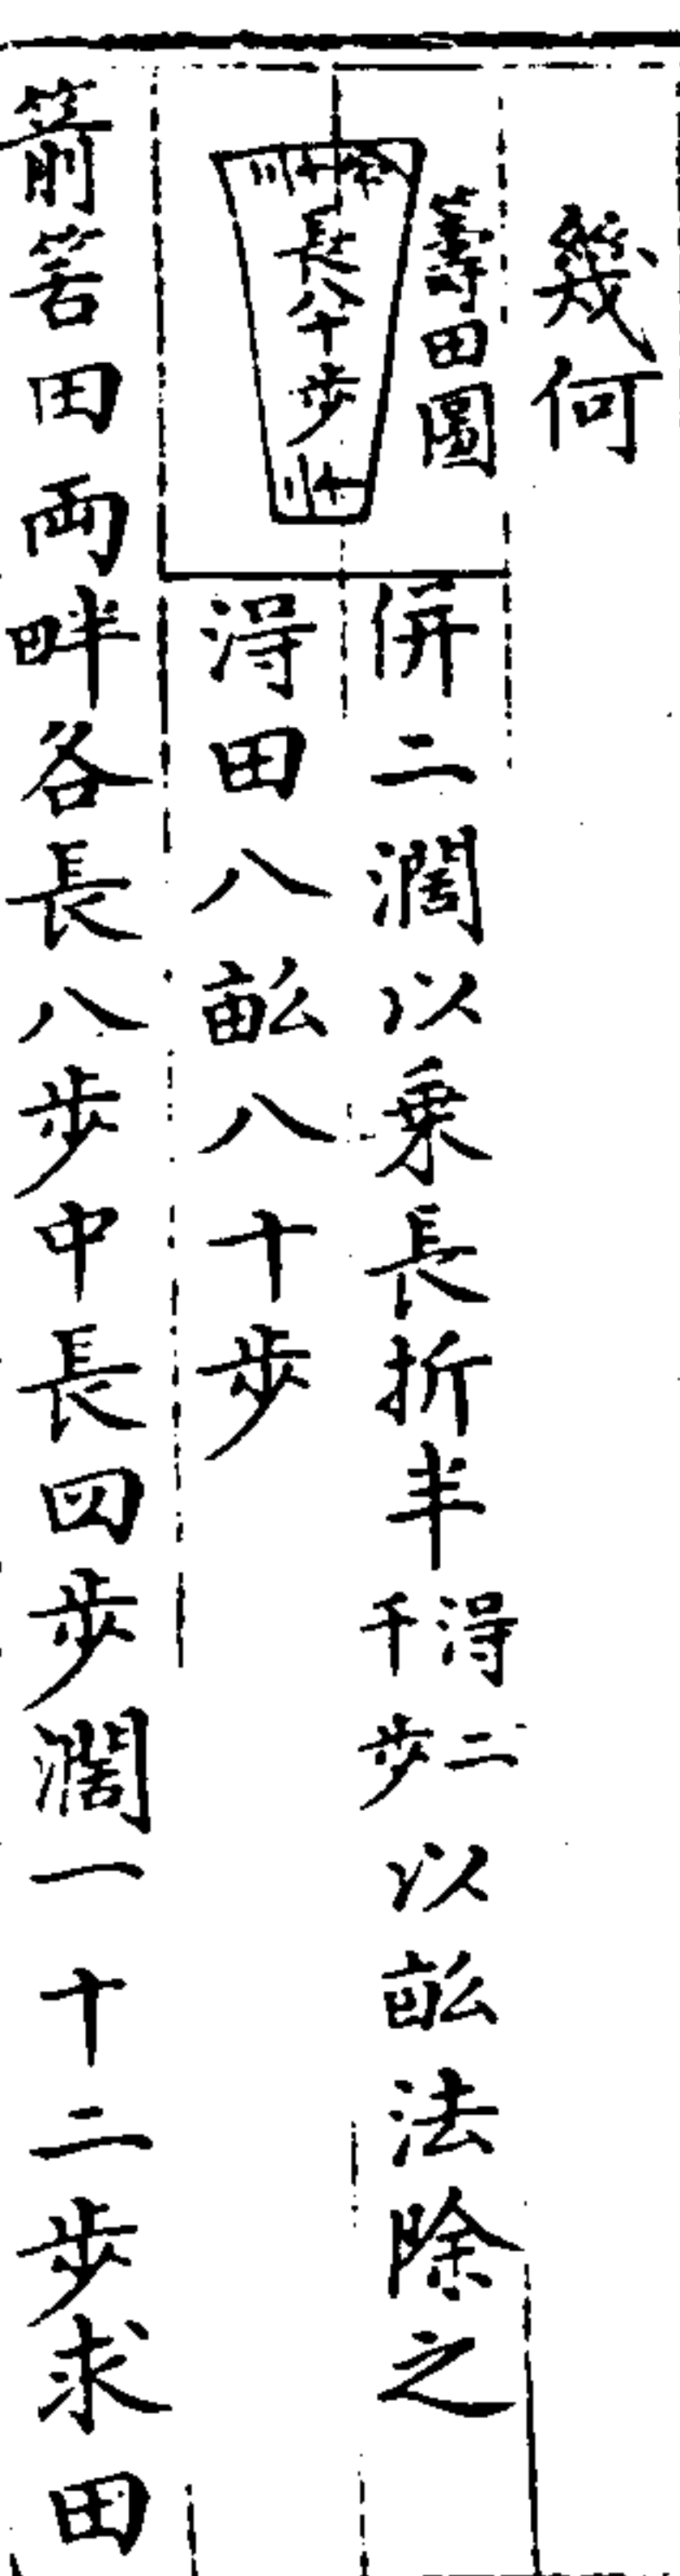 幾何
籌田圖
長八十步
併二濶以乗長折半得二千步以畝法除之
得田八畝八十步
箭筈田両畔各長八步中長四步濶一十二步求田